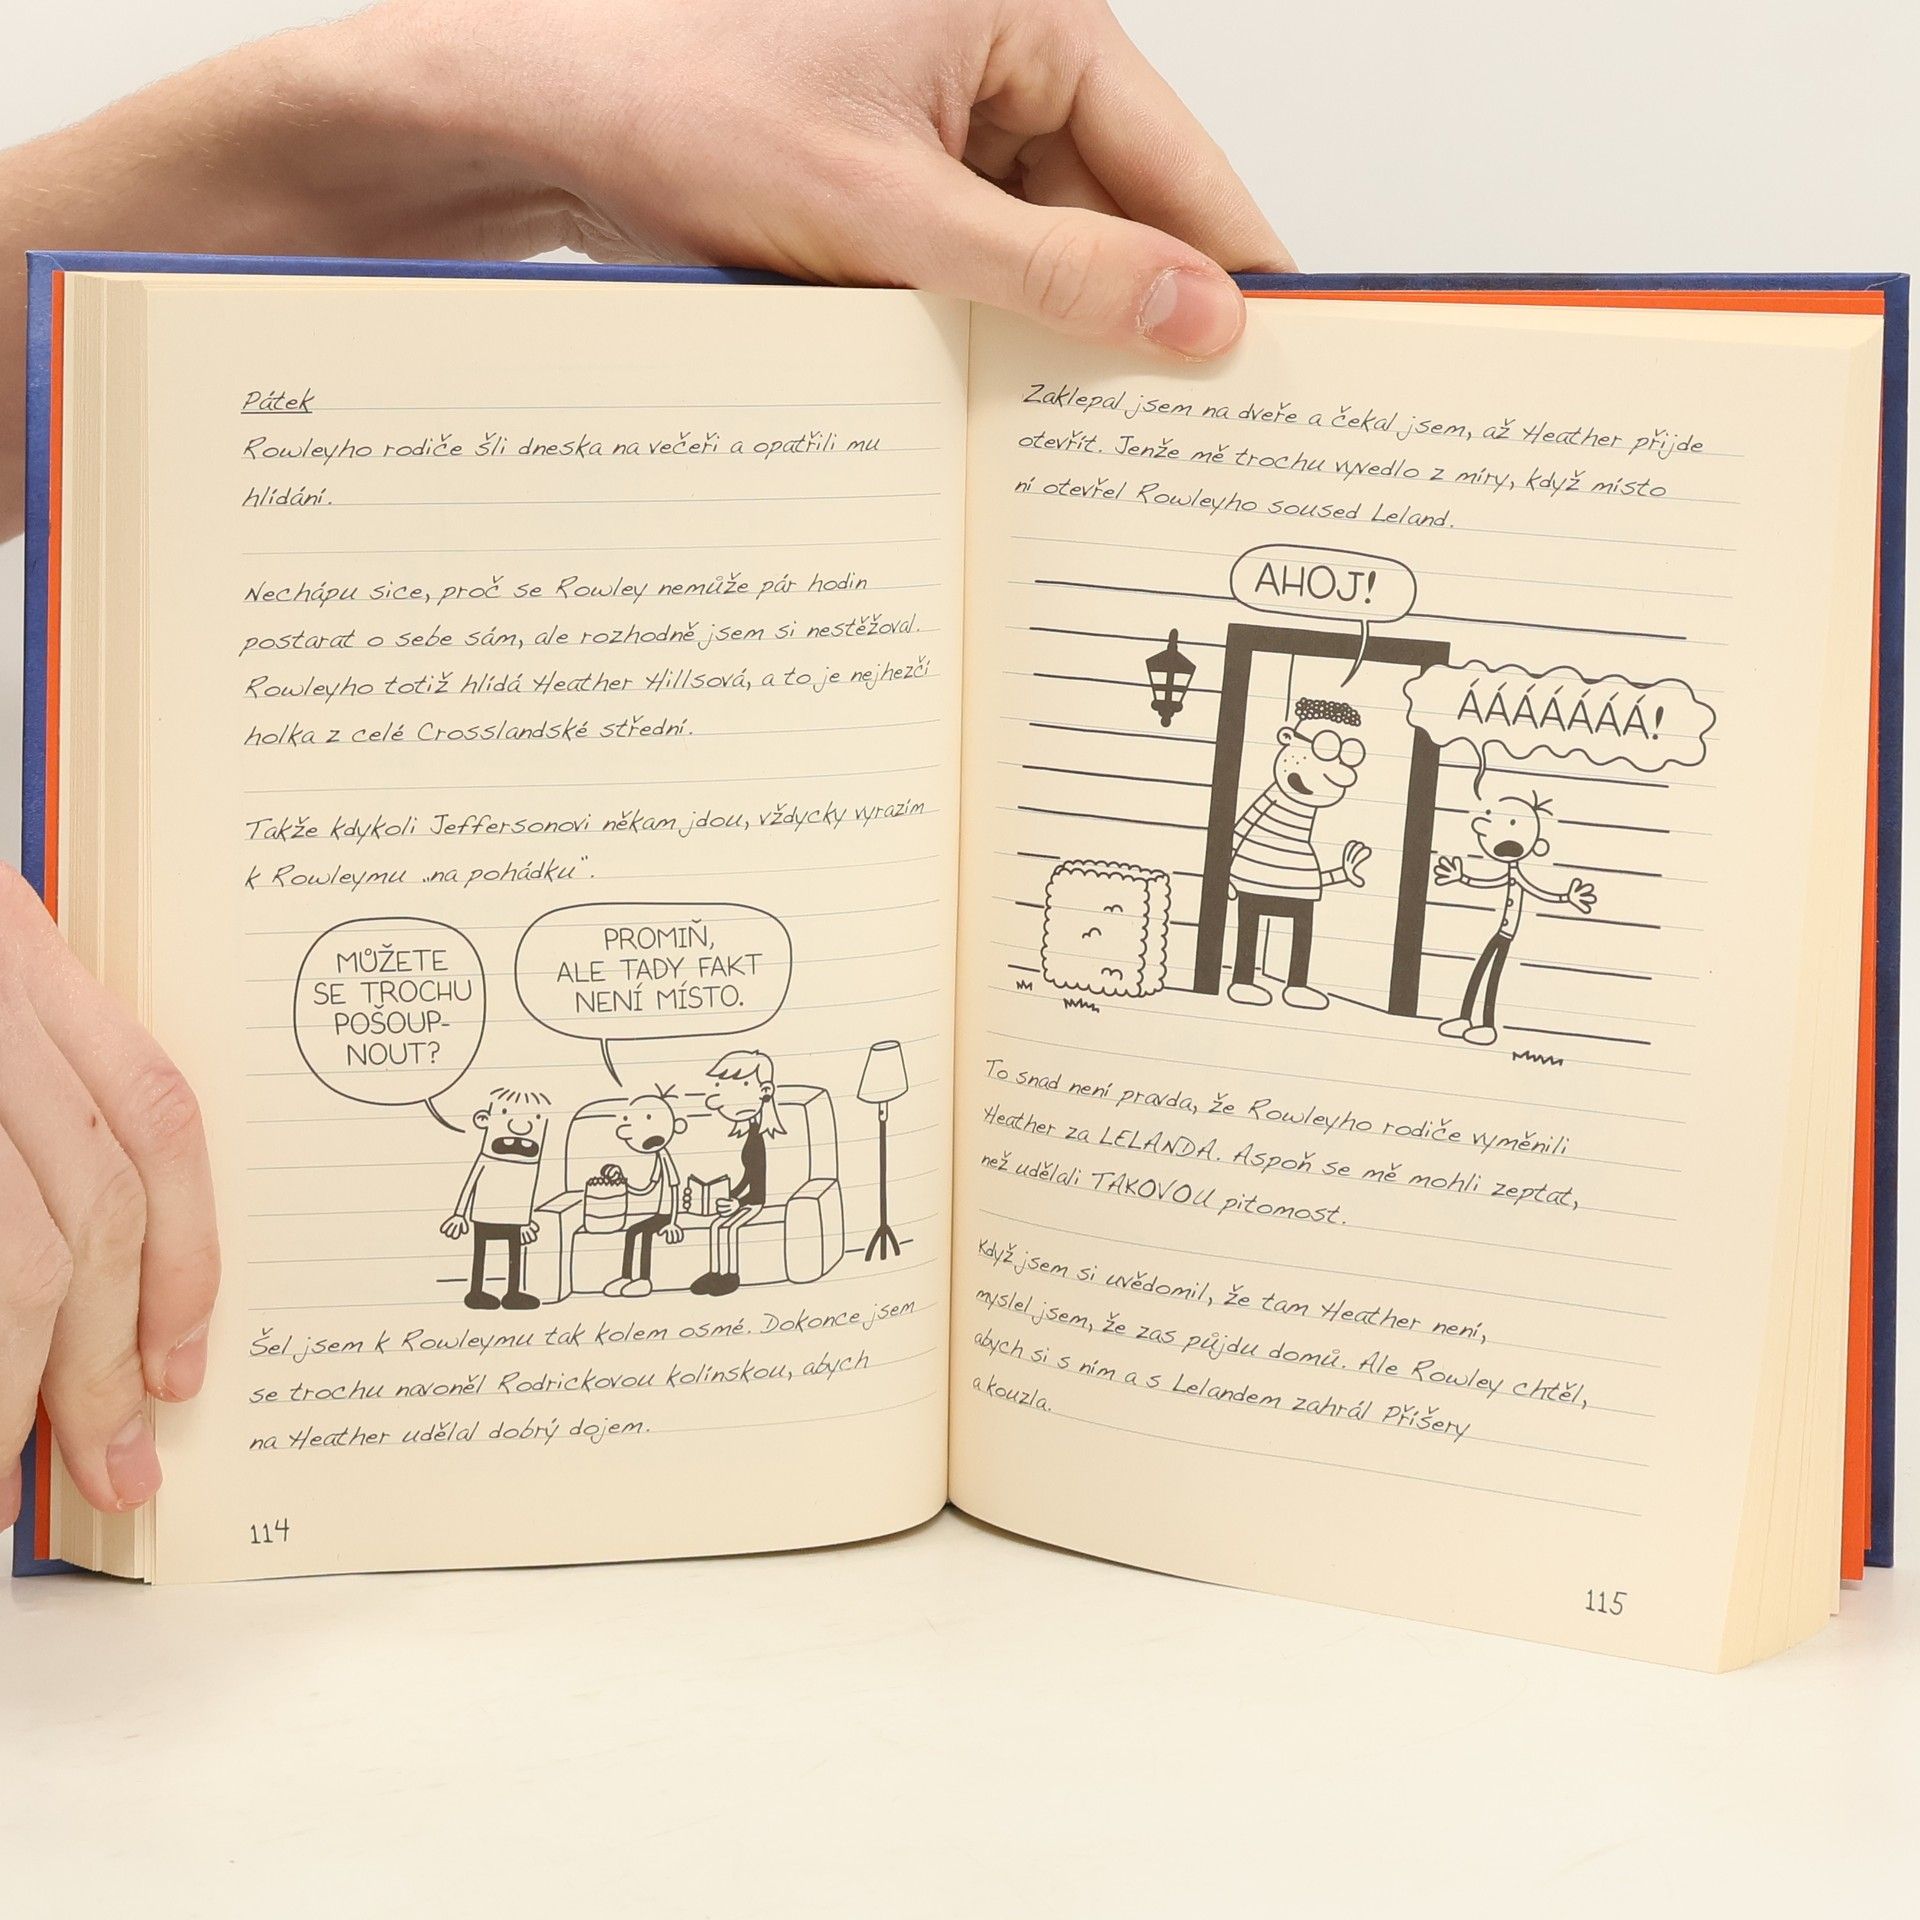 Pátek
Rowleyho rodiče šli dneska na večeři a opatřili mu
hlídání.
Nechápu sice, proč se Rowley nemůže pár hodin
postarat o sebe sám, ale rozhodně jsem si nestěžoval.
Rowleyho totiž hlídá Heather Hillsová, a to je nejhezčí
holka z celé Crosslandské střední.
Takže kdykoli Jeffersonovi někam jdou, vždycky vyrazím
k Rowleymu „na pohádku“.
MŮŽETE
SE TROCHU
POŠOUP-
NOUT?
PROMIŇ,
ALE TADY FAKT
NENÍ MÍSTO.
Šel jsem k Rowleymu tak kolem osmé. Dokonce jsem
se trochu navoněl Rodrickovou kolínskou, abych
na Heather udělal dobrý dojem.
114
Zaklepal jsem na dveře a čekal jsem, až Heather přijde
otevřít. Jenže mě trochu vyvedlo z míry, když místo
ní otevřel Rowleyho soused Leland.
AHOJ!
ÁÁÁÁÁÁÁ!
To snad není pravda, že Rowleyho rodiče vyměnili
Heather za LELANDA. Aspoň se mě mohli zeptat,
než udělali TAKOVOU pitomost.
Když jsem si uvědomil, že tam Heather není,
myslel jsem, že zas půjdu domů. Ale Rowley chtěl,
abych si s ním a s Lelandem zahrál Příšery
a kouzla.
115